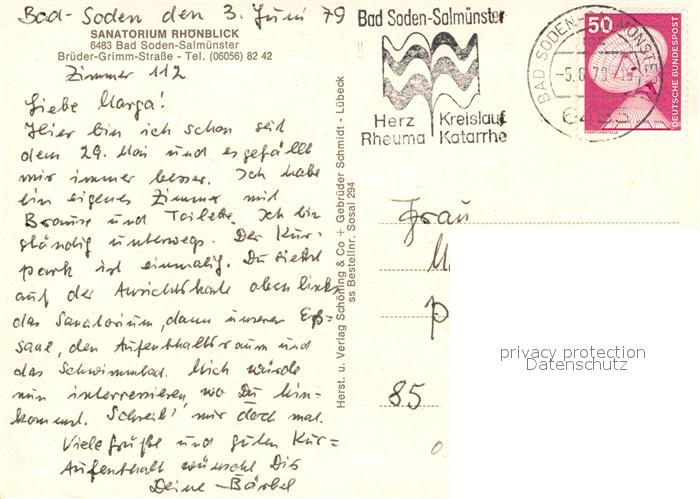 Bad-Soden den 3. Juni 79
SANATORIUM RHÖNBLICK
6483 Bad Soden-Salmünster
Brüder-Grimm-Straße - Tel. (06056) 82 42
Zimmer 112
Liebe Marga!
Hier bin ich schon seit
dem 29. Mai und es gefällt
mir immer besser. Ich habe
ein eigenes Zimmer mit
Brause und Toilette. Ich bin
ständig unterwegs. Der Kur-
park ist einmalig. Du siehst
auf der Ansichtskarte oben links
das Sanatorium, dann unseren Eß-
saal, den Aufenthaltsraum und
das Schwimmbad. Mich würde
nun interressieren, wo Du hin-
kommst. Schreib' mir doch mal.
Viele Grüße und guten Kur=
Aufenthalt wünscht Dir
Deine - Bärbel
Herst. u. Verlag Schöning & Co + Gebrüder Schmidt - Lübeck
ss Bestellnr. Sosal 294
Bad Soden-Salmünster
Herz Kreislauf
Rheuma Katarrhe
BAD SODEN-SALMÜNSTER
-5.6.79
50
DEUTSCHE BUNDESPOST
ERDFUNKSTELLE
Frau
85
privacy protection
Datenschutz